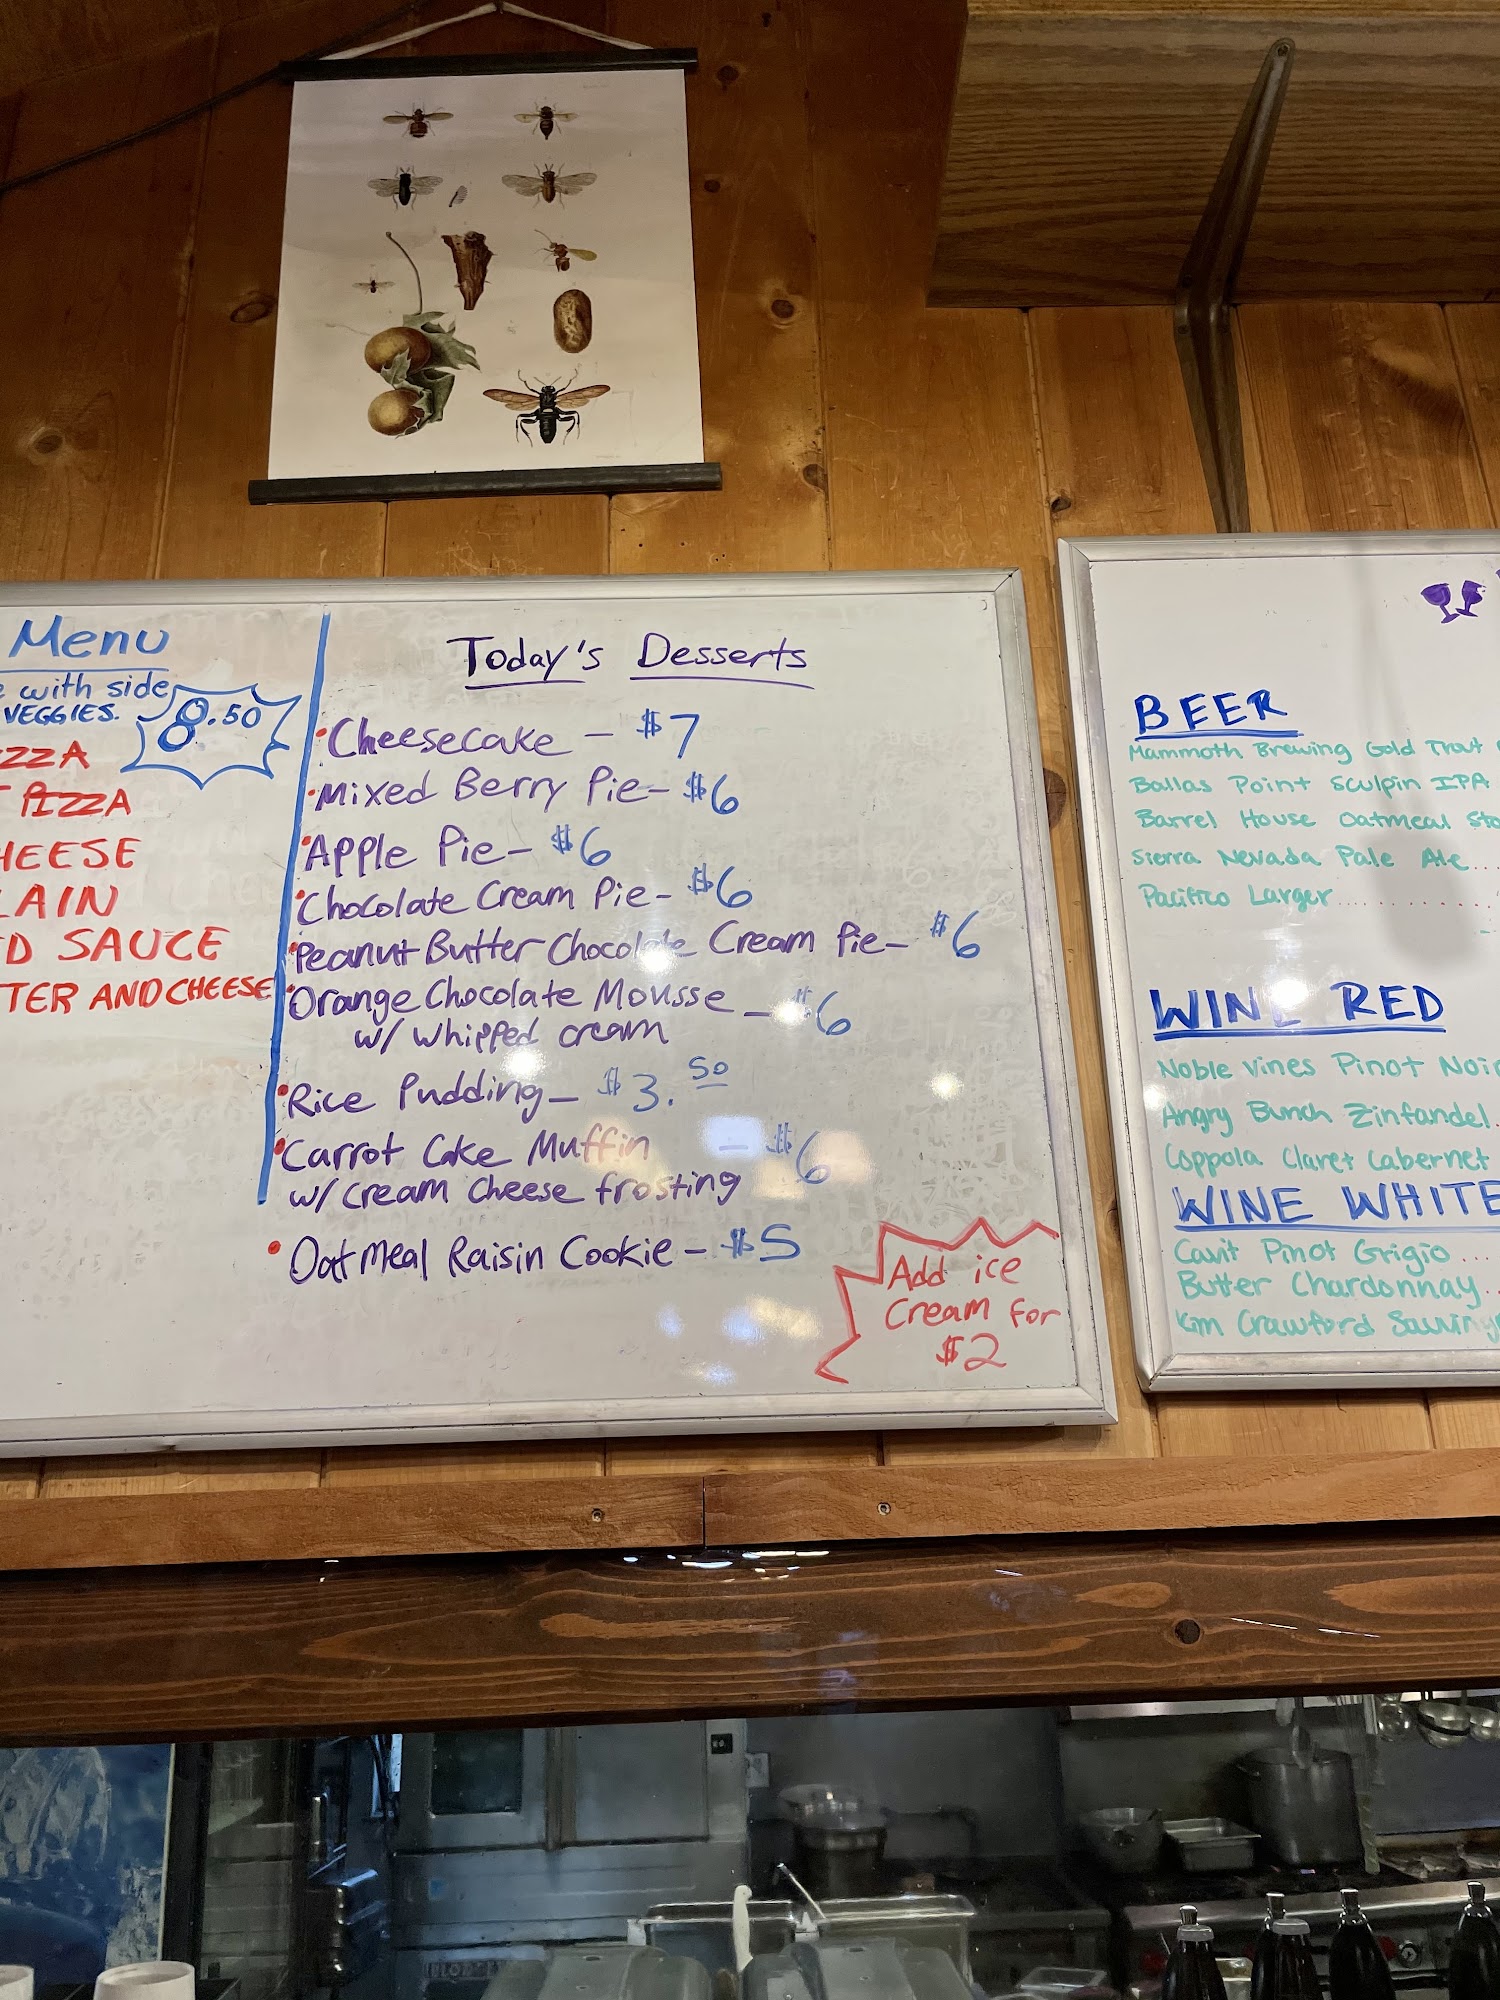 Menu
with side
VEGGIES.
8.50
PIZZA
SAUCE
AND CHEESE
Today's Desserts
• Cheesecake - $7
• Mixed Berry Pie - $6
• Apple Pie - $6
• Chocolate Cream Pie - $6
• Peanut Butter Chocolate Cream Pie - $6
• Orange Chocolate Mousse - $6
w/ whipped cream
• Rice Pudding - $3.50
• Carrot Cake Muffin - $6
w/ Cream Cheese frosting
• Oatmeal Raisin Cookie - $5
Add ice
Cream for
$2
BEER
Mammoth Brewing Gold Trout
Ballas Point Sculpin IPA
Barrel House Oatmeal
Sierra Nevada Pale Ale...
Pacifico Larger..........
WINE RED
Noble Vines Pinot Noir
Angry Bunch Zinfandel.
Coppola Claret Cabernet
WINE WHITE
Cavit Pinot Grigio....
Butter Chardonnay..
Kim Crawford